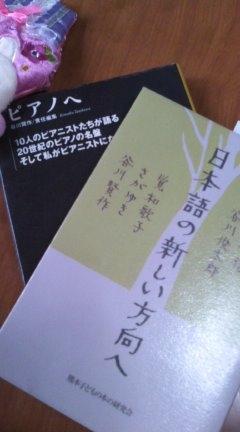 ピアノへ
谷川賢作/責任編集
10人のピアニストたちが語る
20世紀のピアノの名盤
そして私がピアニストにな
日本語の新しい方向へ
谷川俊太郎
覚和歌子
さがゆき
谷川賢作
熊本子どもの本の研究会